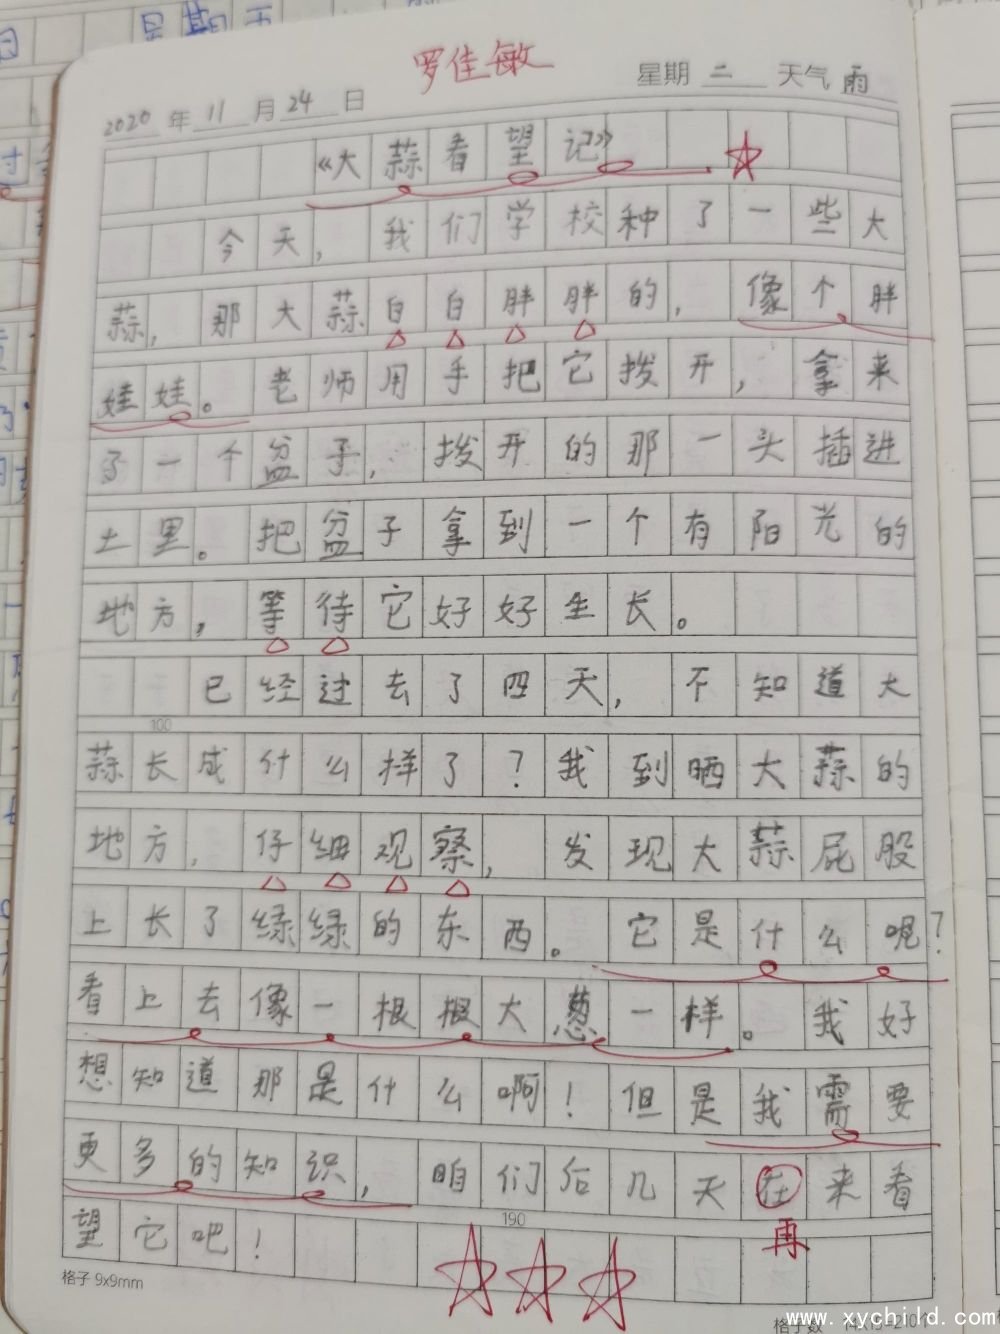 罗佳敏
2020年11月24日 星期二 天气雨
《大蒜看望记》
今天，我们学校种了一些大
蒜，那大蒜白白胖胖的，像个胖
娃娃。老师用手把它拨开，拿来
了一个盆子，拨开的那一头插进
土里。把盆子拿到一个有阳光的
地方，等待它好好生长。
已经过去了四天，不知道大
100
蒜长成什么样了？我到晒大蒜的
地方，仔细观察，发现大蒜屁股
上长了绿绿的东西。它是什么呢？
看上去像一根根大葱一样。我好
想知道那是什么啊！但是我需要
更多的知识，咱们后几天在来看
190
再
望它吧！
格子 9x9mm
www.xychild.com